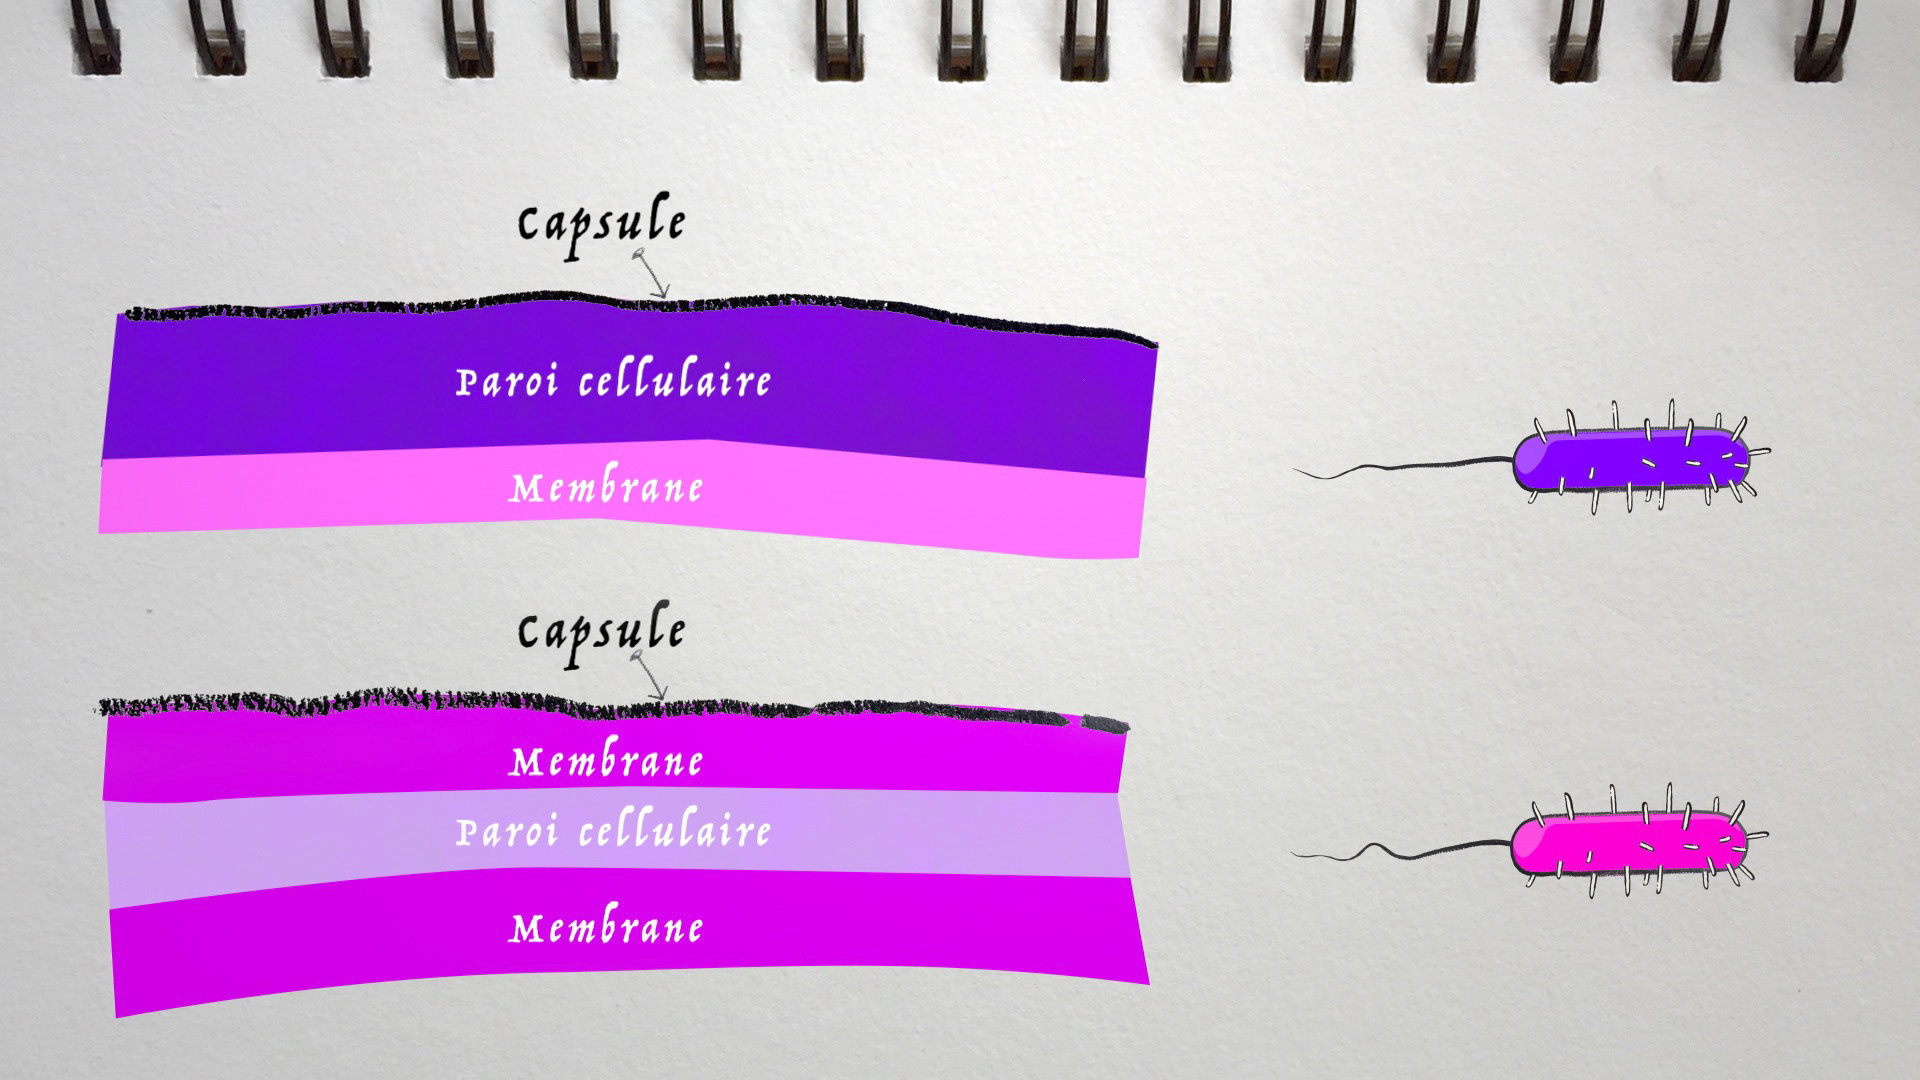 Capsule
Paroi cellulaire
Membrane
Capsule
Membrane
Paroi cellulaire
Membrane